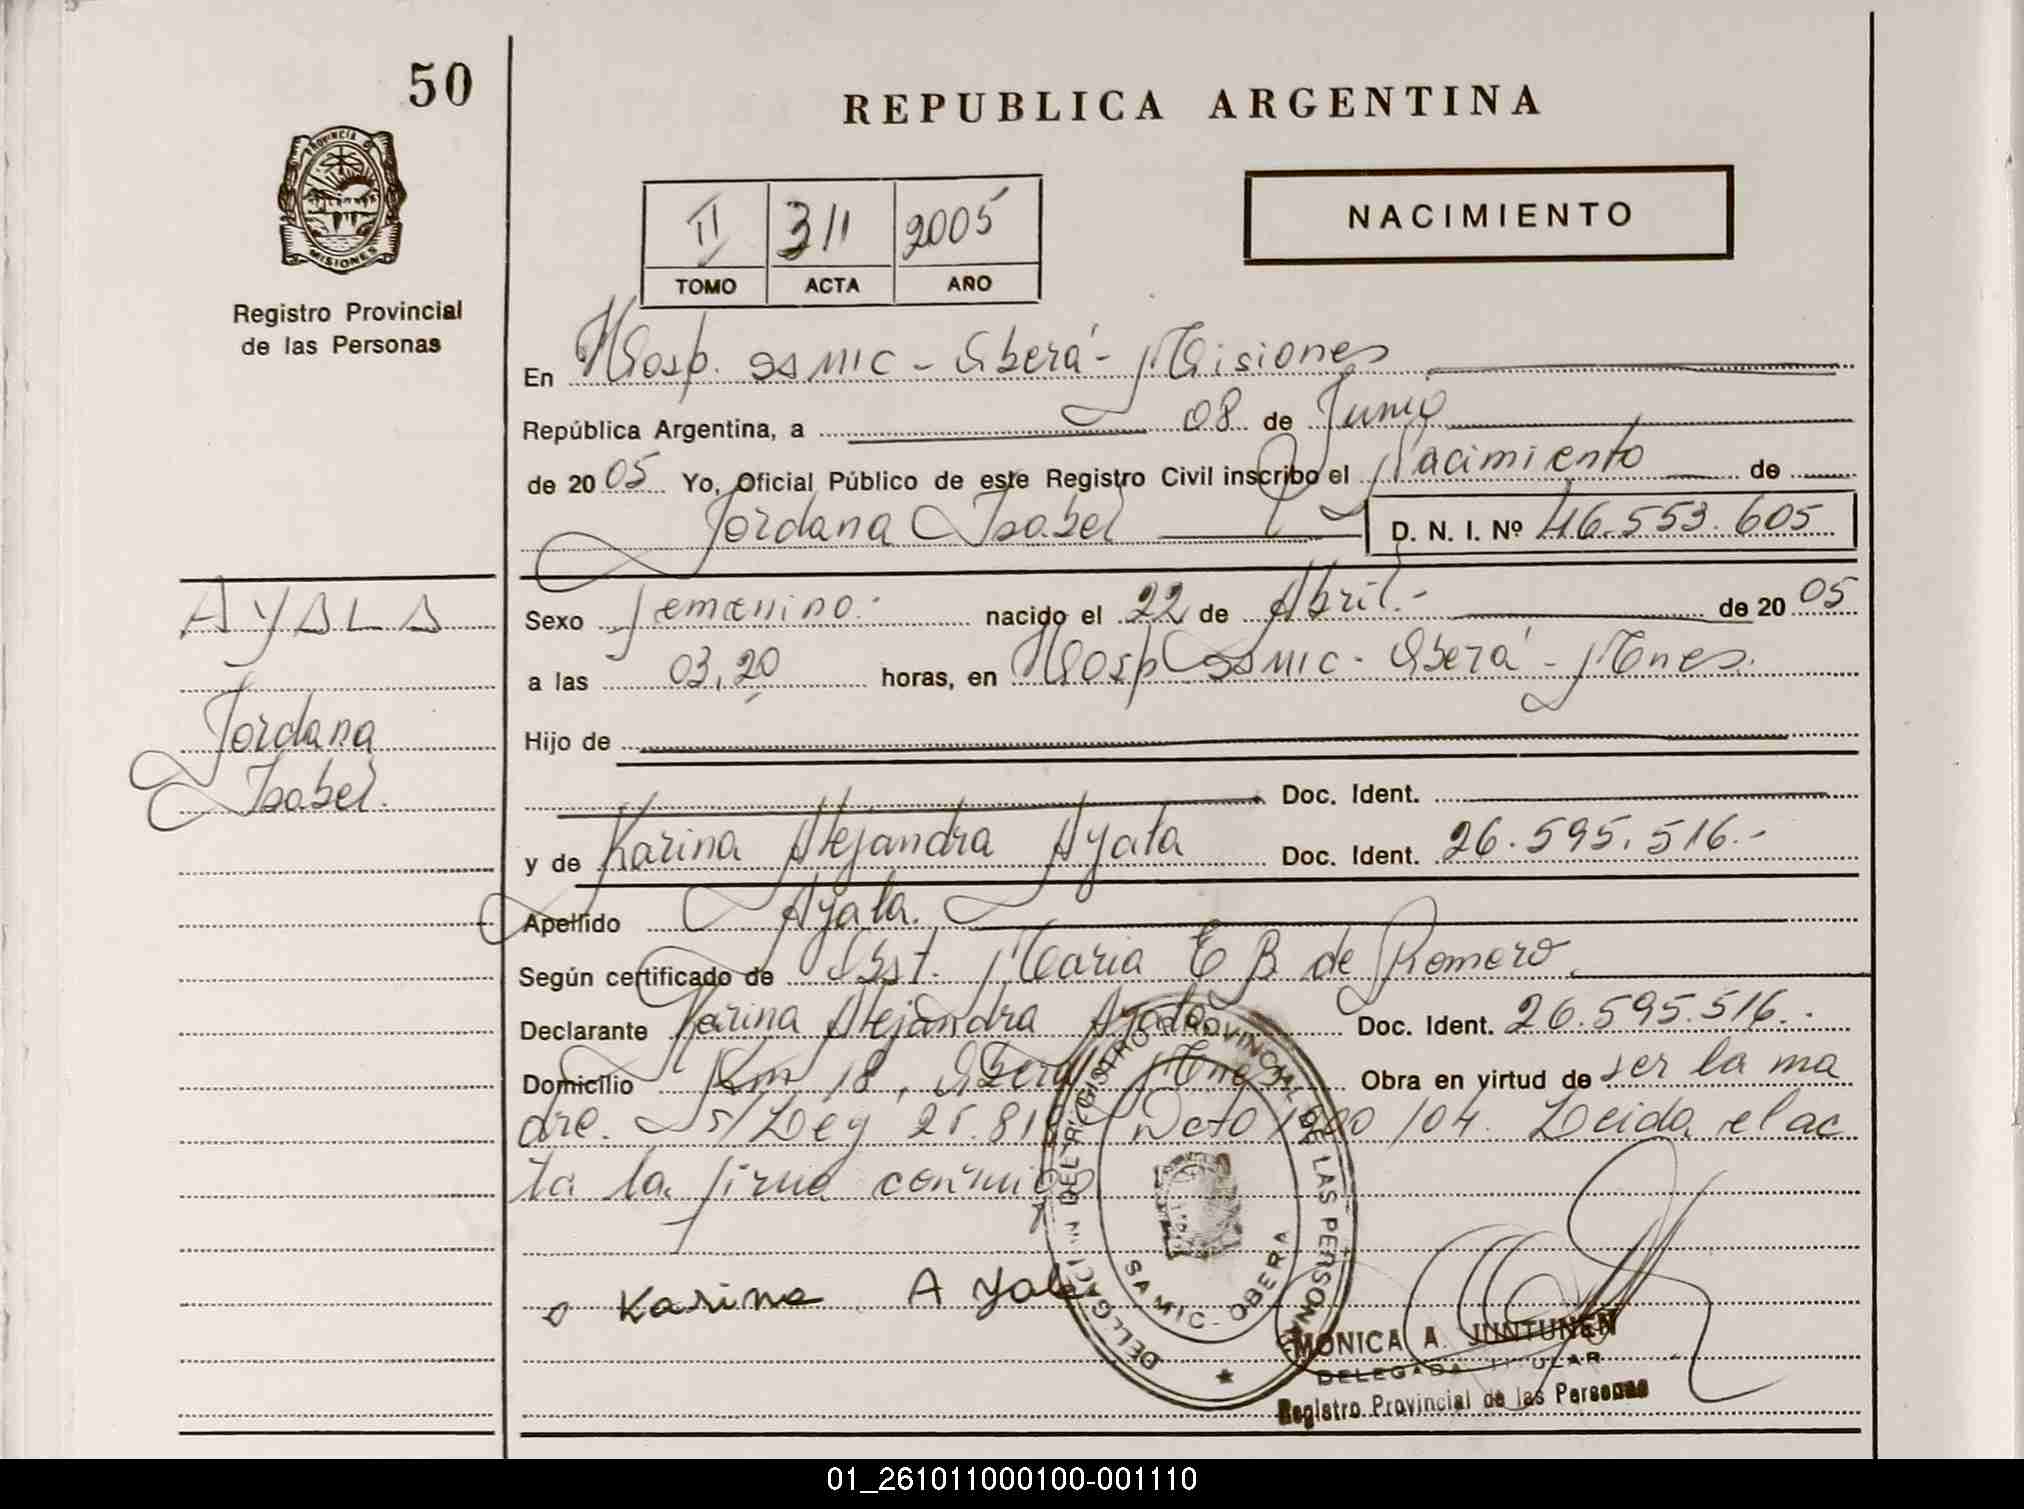 50
REPUBLICA ARGENTINA
PROVINCIA DE MISIONES
Registro Provincial
de las Personas
II 311 2005
TOMO ACTA AÑO
NACIMIENTO
En Hosp. SAMIC - Oberá - Misiones
República Argentina, a 08 de Junio
de 2005 Yo, Oficial Público de este Registro Civil inscribo el Nacimiento de
Jordana Isabel D. N. I. Nº 46.553.605
AYALA
Jordana
Isabel.
Sexo femenino.- nacido el 22 de Abril.- de 2005
a las 03,20 horas, en Hosp SAMIC - Oberá - Mnes.
Hijo de
Doc. Ident.
y de Karina Alejandra Ayala Doc. Ident. 26.595.516.-
Apellido Ayala.
Según certificado de Obst. Maria E B de Romero.
Declarante Karina Alejandra Ayala Doc. Ident. 26.595.516.-
Domicilio Km 18, Oberá Mnes. Obra en virtud de ser la ma
dre. S/Ley 25.819 Dcto 1200/04. Leida el ac
ta la firma conmigo
Karina Ayala
DELEGACION DEL REGISTRO PROVINCIAL DE LAS PERSONAS
SAMIC - OBERA
MONICA A. JUNTUNEN
DELEGADA TITULAR
Registro Provincial de las Personas
01_261011000100-001110